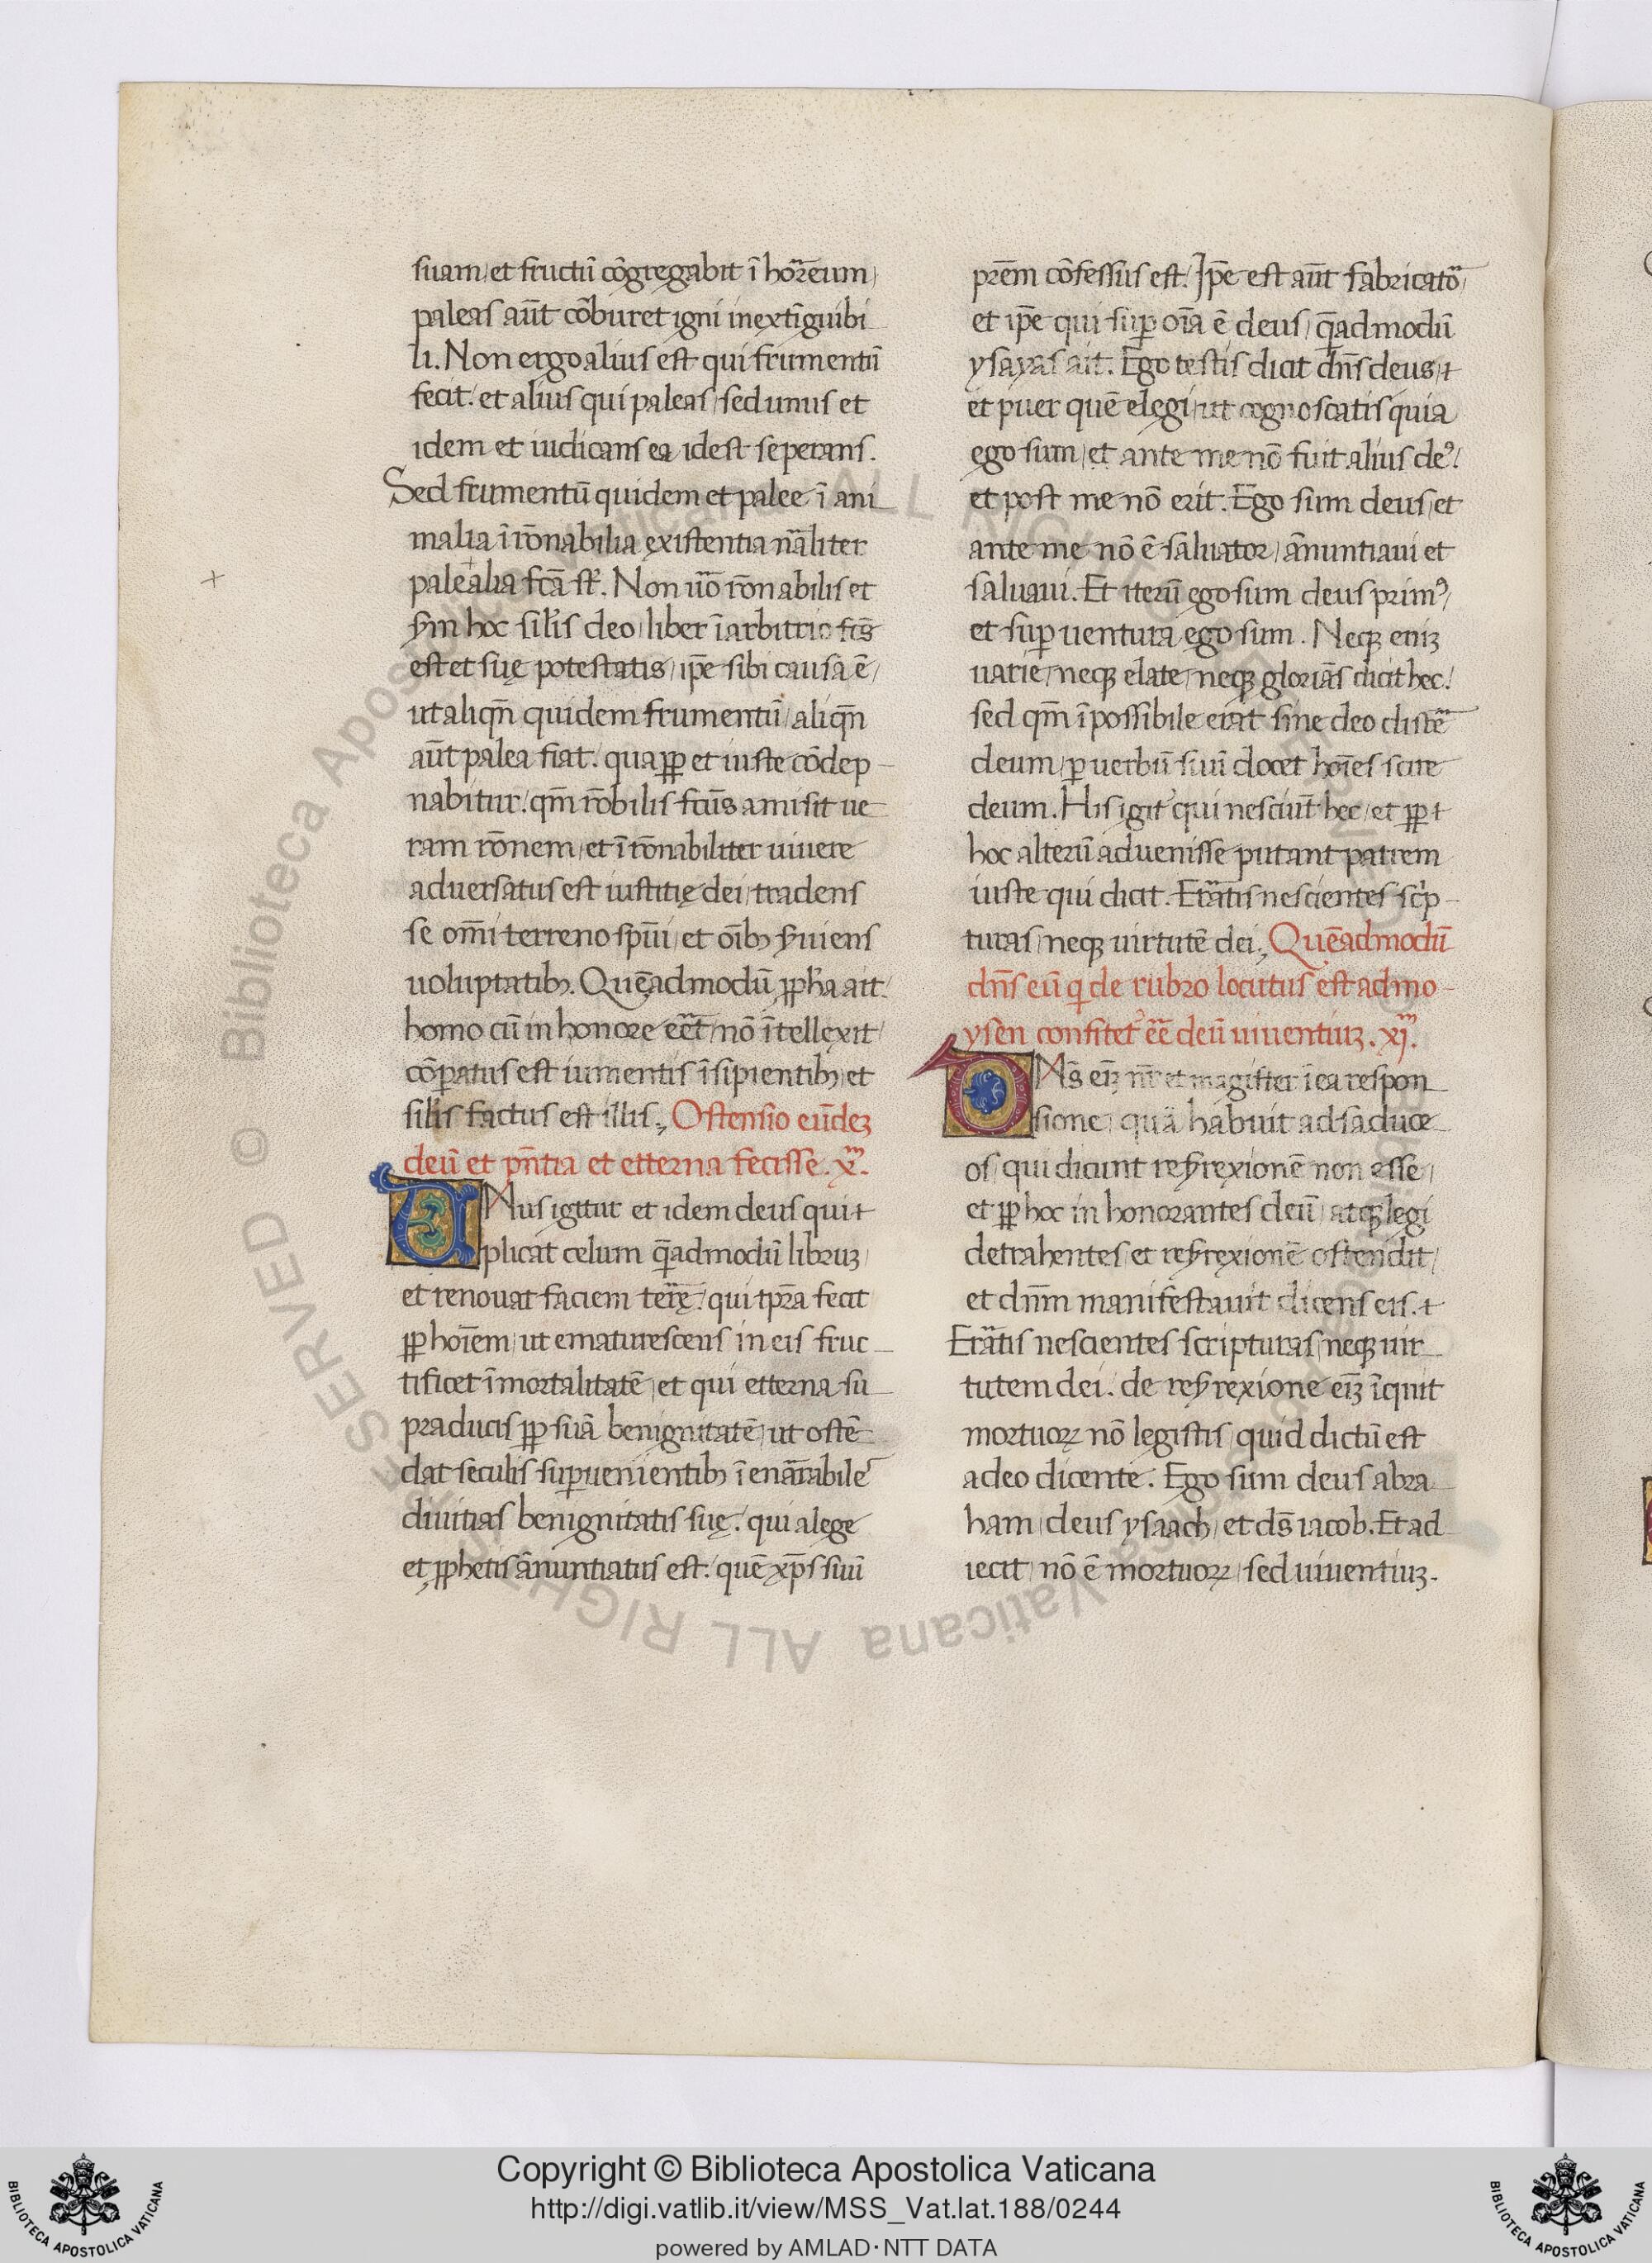 suam, et fructū cōgregabit ī horreum,
paleas aūt cōburet igni inextīguibi
li. Non ergo alius est qui frumentū
fecit. et alius qui paleas, sed unus et
idem et iudicans ea idest seperans.
Sed frumentū quidem et palee ī ani
malia īrōnabilia existentia nāliter
palealia fcā st. Non uō rōnabilis et
hoc silis deo, liber ī arbitrio fcs
est et suę potestatis, ipē sibi causa ē,
ut aliqn̄ quidem frumentū, aliqn̄
aūt palea fiat. quapp et iuste cōdep
nabitur. qm̄ rōbilis fcūs amisit ue
ram rōnem, et īrōnabiliter uiuere
aduersatus est iustitię dei, tradens
se om̄i terreno spūi, et oībꝫ
uoluptatibꝫ. Quēadmodū ppha ait.
homo cū in honore eēt, nō ītellexit,
cōparatus est iumentis īsipientibꝫ, et
silis factus est illis. Ostensio eūdeꝫ
deū et pn̄tia et etterna fecisse. x.
VNus igitur et idem deus qui
plicat celum q̄admodū libruꝫ,
et renouat faciem terrę. qui tpra fecit
pp hoīem, ut ematurescens in eis fruc
tificet īmortalitatē, et qui etterna su
praducis pp suā benignitatē, ut ostē
dat seculis supuenientibꝫ īenarrabile
diuitias benignitatis suę. qui a lege
et pphetis ānuntiatus est. quē xp̄s suū
prēm cōfessus est. Ipē est aūt fabricato,
et ipē qui sup oīa ē deus, q̄admodū
ysayas ait. Ego testis dicit dn̄s deus,
et puer quē elegi, ut cognoscatis quia
ego sum, et ante me nō fuit alius deꝰ.
et post me nō erit. Ego sum deus, et
ante me nō ē saluator, ānuntiaui et
saluaui. Et iterū ego sum deus primꝰ,
et sup uentura ego sum. Neqꝫ eniꝫ
uarie, neqꝫ elate, neqꝫ glorians dicit hec.
sed qm̄ īpossibile erat sine deo discē
deum, p uerbū suū docet hoīes scire
deum. His igit qui nesciūt hec, et pp
hoc alterū aduenisse putant patrem
iuste qui dicit. Erratis nescientes scrip
turas, neqꝫ uirtutē dei. Quēadmodū
dn̄s eū q de rubro locutus est ad mo
ysen confitet eē deū uiuentiuꝫ. xj.
DNs̄ eiꝫ nr̄ et magister ī ea respon
sione, quā habuit ad saduce
os, qui dicunt resurrexionē non esse,
et pp hoc in honorantes deū, atqꝫ legi
detrahentes, et resurrexionē ostendit,
et dn̄m manifestauit dicens eis.
Erratis nescientes scripturas, neqꝫ uir
tutem dei. de resurrexione eiꝫ īquit
mortuoꝝ nō legistis, quid dictū est
a deo dicente. Ego sum deus abra
ham, deus ysaach, et ds̄ iacob. Et ad
iecit, nō ē mortuoꝝ, sed uiuentiuꝫ.
© Biblioteca Apostolica Vaticana ALL RIGHTS RESERVED
Copyright © Biblioteca Apostolica Vaticana
http://digi.vatlib.it/view/MSS_Vat.lat.188/0244
powered by AMLAD·NTT DATA
BIBLIOTECA APOSTOLICA VATICANA
BIBLIOTECA APOSTOLICA VATICANA